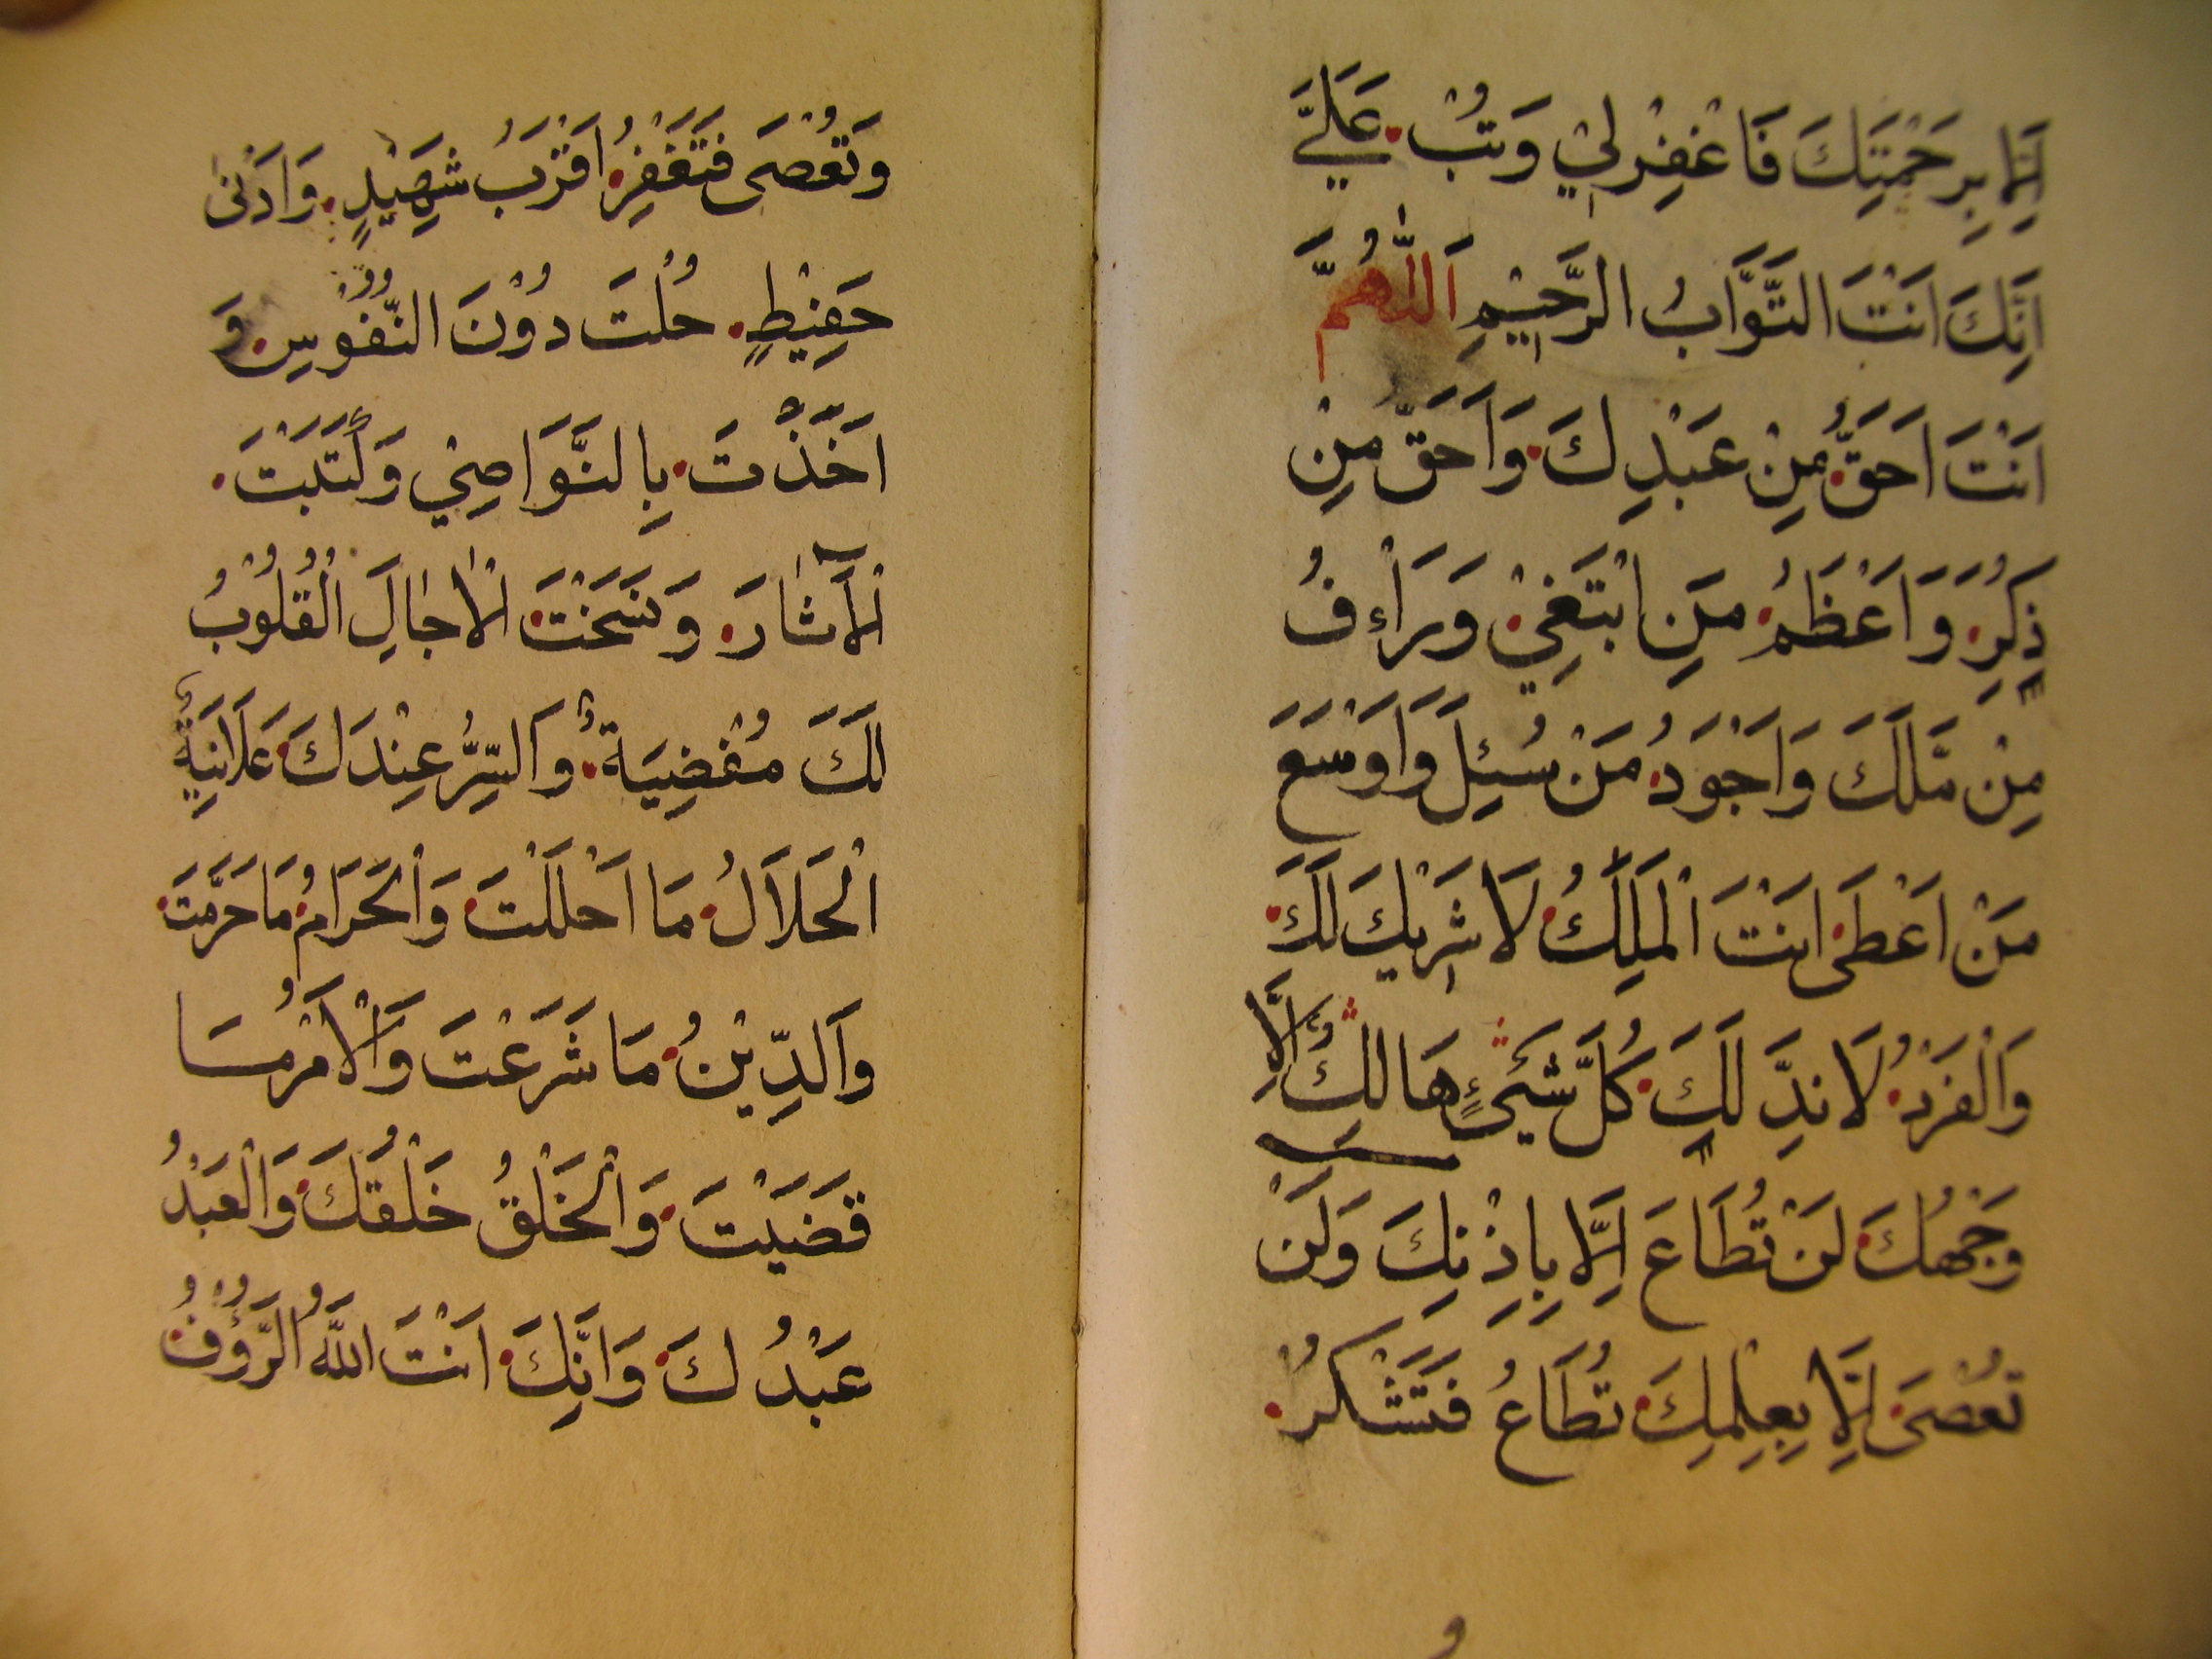 اِلَّا بِرَحْمَتِكَ فَاغْفِرْلِيْ وَتُبْ عَلَيَّ
اِنَّكَ اَنْتَ التَّوَّابُ الرَّحِيْمِ اَللّٰهُمَّ
اَنْتَ اَحَقُّ مِنْ عَبْدِكَ وَاَحَقُّ مِنْ
ذُكِرَ وَاَعْظَمُ مَنِ ابْتَغِيْ وَرَاْءفُ
مِنْ مَلَكَ وَاَجْوَدُ مَنْ سُئِلَ وَاَوْسَعَ
مَنْ اَعْطَى اَنْتَ الْمَلِكُ لَا شَرِيْكَ لَكَ
وَالْفَرْدُ لَا نِدَّ لَكَ كُلُّ شَيْءٍ هَالِكٌ اِلَّا
وَجْهُكَ لَنْ تُطَاعَ اِلَّا بِاِذْنِكَ وَلَنْ
تُعْصَى اِلَّا بِعِلْمِكَ تُطَاعُ فَتَشْكُرُ
وَتُعْصَى فَتَغْفِرُ اَقْرَبُ شَهِيْدٍ وَاَدْنٰى
حَفِيْظٍ حُلْتَ دُوْنَ النُّفُوْسِ وَ
اَخَذْتَ بِالنَّوَاصِيْ وَكَتَبْتَ
الْاٰثَارَ وَنَسَخْتَ الْاٰجَالِ الْقُلُوْبُ
لَكَ مُفْضِيَةٌ وَالسِّرُّ عِنْدَكَ عَلَانِيَةٌ
الْحَلَالُ مَا اَحْلَلْتَ وَالْحَرَامُ مَا حَرَّمْتَ
وَالدِّيْنُ مَا شَرَعْتَ وَالْاَمْرُ مَا
قَضَيْتَ وَالْخَلْقُ خَلْقُكَ وَالْعَبْدُ
عَبْدُكَ وَاِنَّكَ اَنْتَ اللّٰهُ الرَّؤُفُ